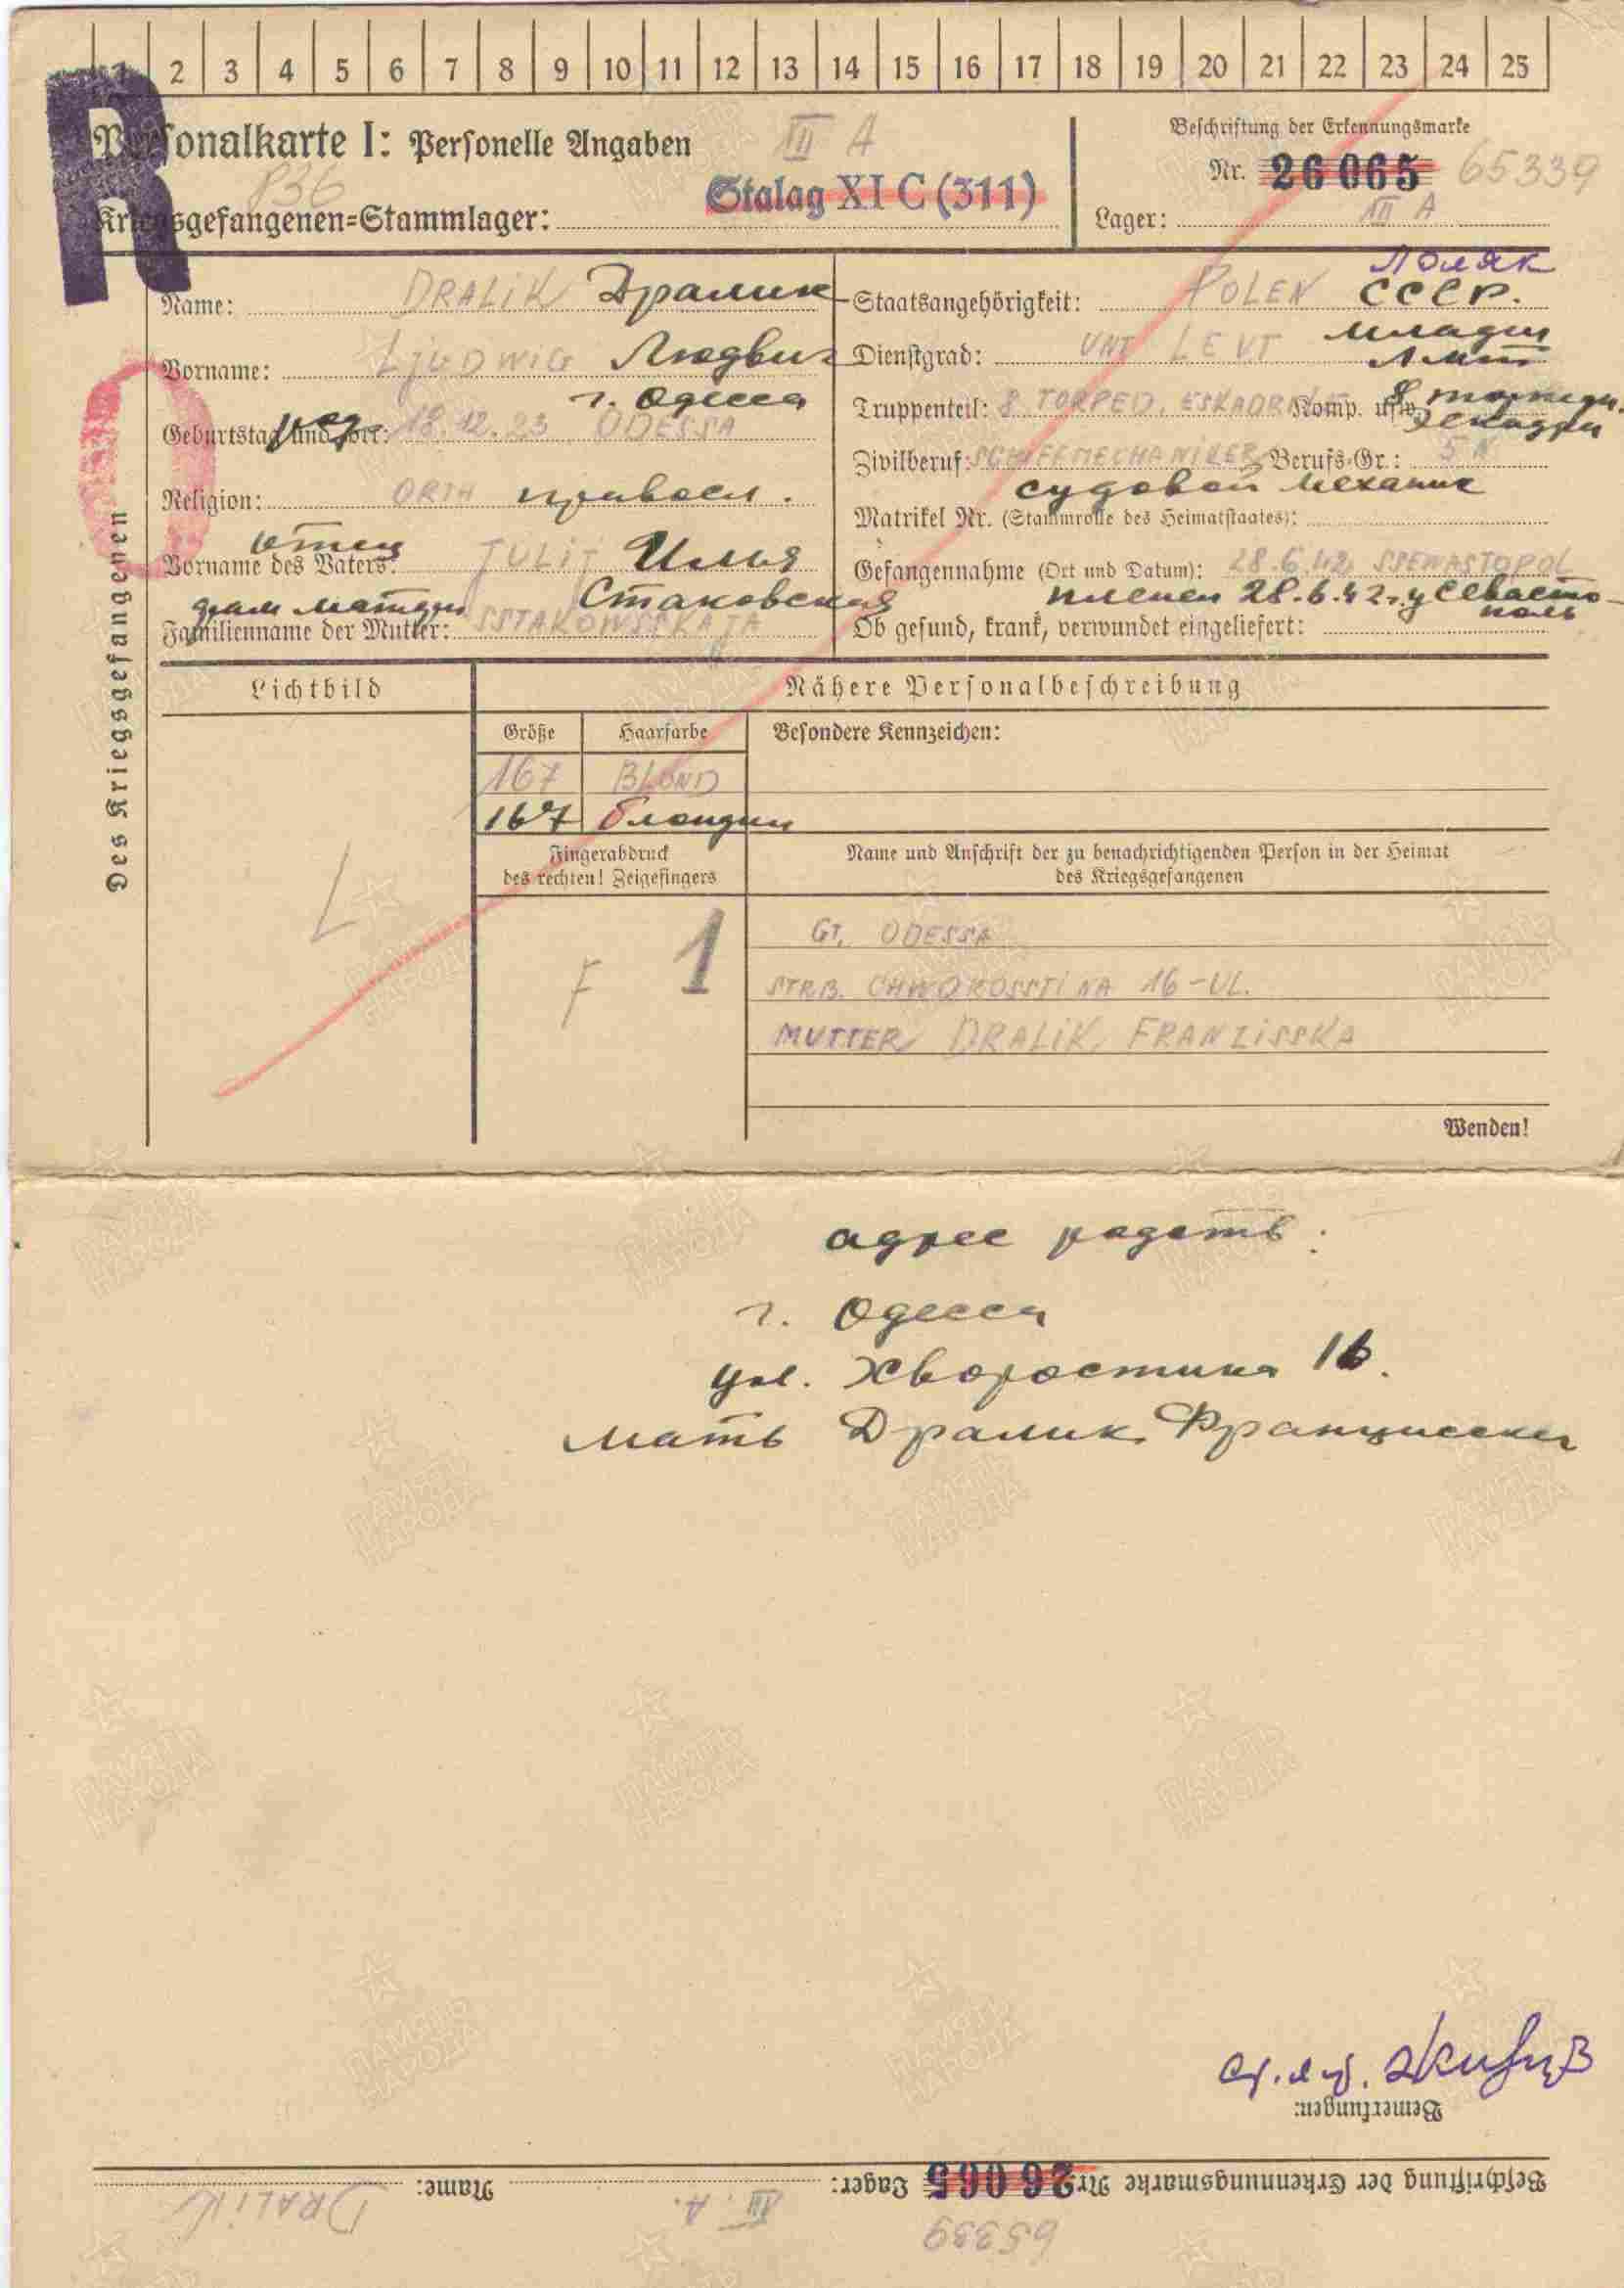 1 2 3 4 5 6 7 8 9 10 11 12 13 14 15 16 17 18 19 20 21 22 23 24 25
R
Personalkarte I: Personelle Angaben
III A
Beschriftung der Erkennungsmarke
836
Nr. 26065 65339
Kriegsgefangenen=Stammlager: Stalag XI C (311)
Lager: III A
Name: DRALIK Дралик
Staatsangehörigkeit: POLEN поляк СССР.
Vorname: LJUDWIG Людвиг
Dienstgrad: UNT LEUT
г. Одесса
Geburtstag und =ort: 18.12.23 ODESSA
Truppenteil: 8 TORPED. ESKADR Komp. usw.
Zivilberuf: SCHIFFMECHANIKER Berufs-Gr.: 5
судовой механик
Religion: ORTH правосл.
Matrikel Nr. (Stammrolle des Heimatstaates):
отец
Vorname des Vaters: Илья
Gefangennahme (Ort und Datum): 28.6.42 SSEWASTOPOL
пленен 28.6.42 г. у Севастополь
Стаковская
Familienname der Mutter: SSTAKOWSSKAJA
Ob gesund, krank, verwundet eingeliefert:
Des Kriegsgefangenen
Lichtbild
Nähere Personalbeschreibung
Größe Haarfarbe Besondere Kennzeichen:
167 BLOND
167 блондин
Fingerabdruck
des rechten! Zeigefingers
Name und Anschrift der zu benachrichtigenden Person in der Heimat
des Kriegsgefangenen
L
F 1
GT. ODESSA
STRB. CHWOROSSTINA 16-UL.
MUTTER DRALIK FRANZISSKA
Wenden!
адрес родств.
г. Одесса
ул. Хворостина 16.
мать Дралик Франциска
Bemerkungen:
Beschriftung der Erkennungsmarke Nr. 26065 Lager: III. A. Name: DRALIK
65339
ПАМЯТЬ НАРОДА